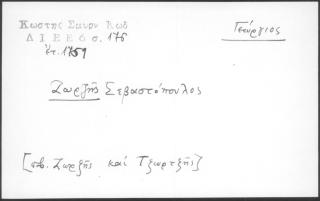 Κωστης Σμυρν Κωδ
ΔΙΕΕ6 σ. 176
ἔτ. 1759
Γεώργιος
Ζωρζῆς Σεβαστόπουλος
[πβ. Ζωρζῆς καί Τζωρτζῆς]